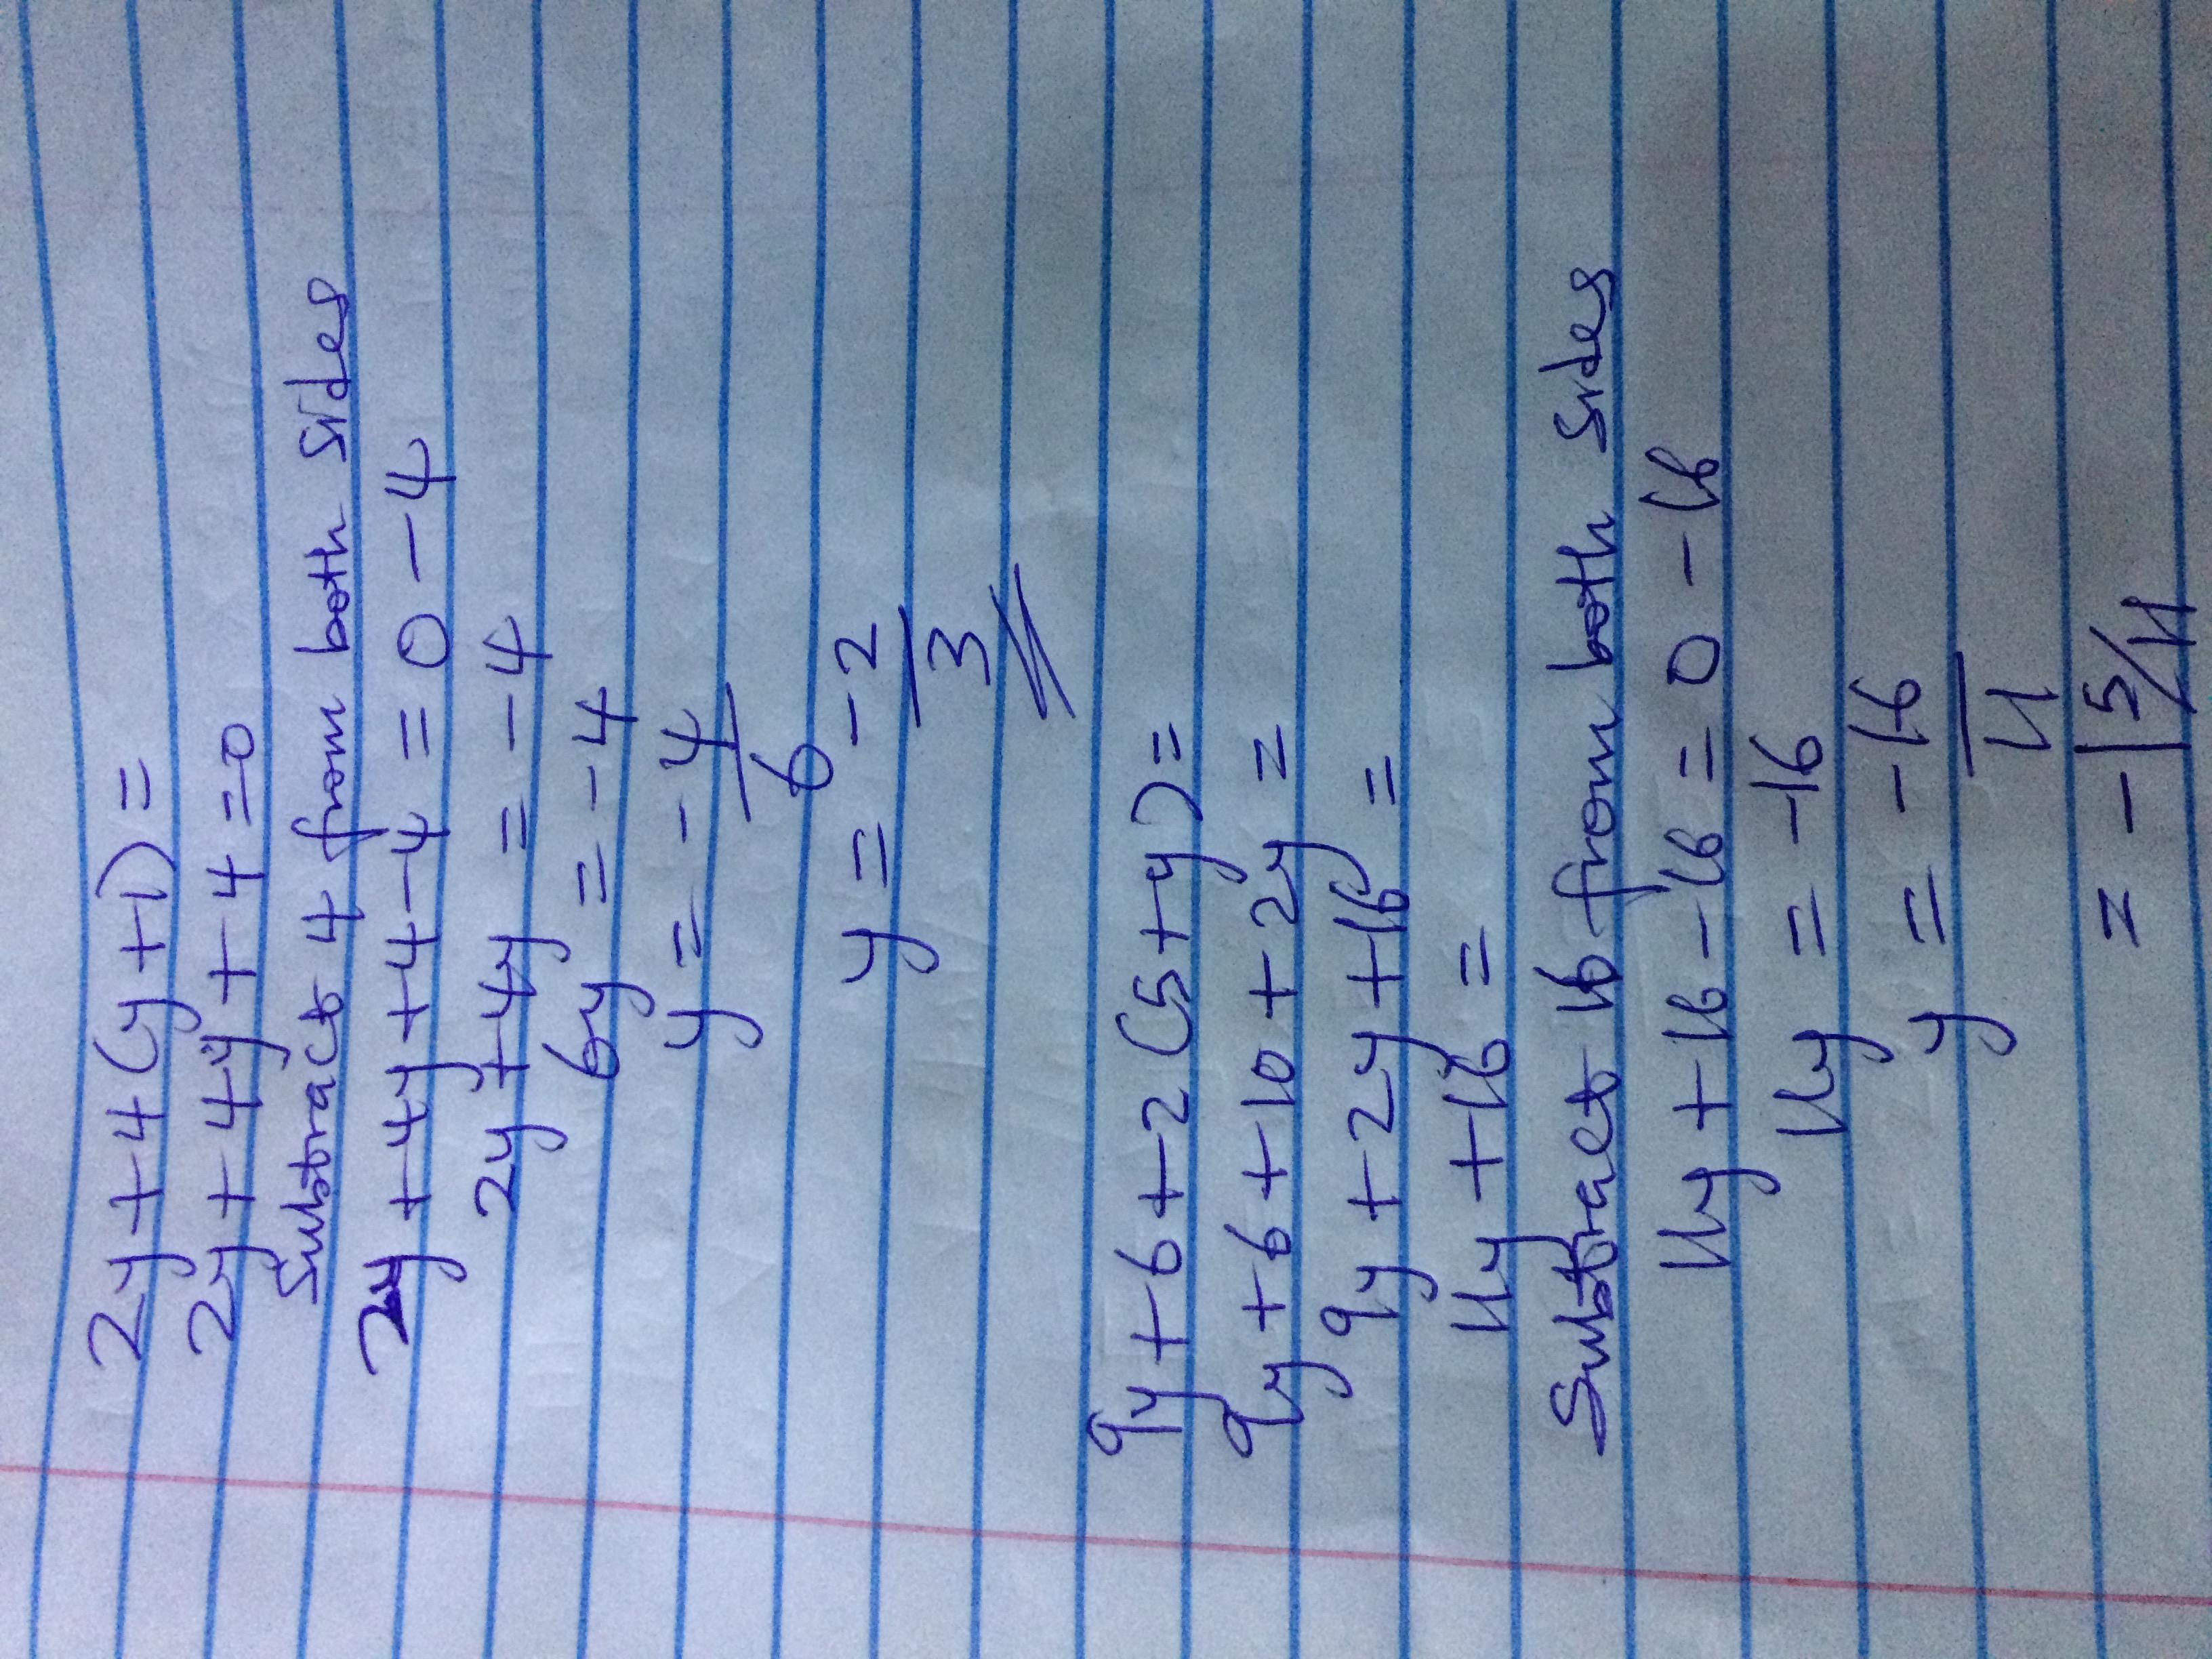 2y + 4(y+1) =
2y + 4y + 4 = 0
Subtract 4 from both sides
2y + 4y + 4 - 4 = 0 - 4
2y + 4y = -4
6y = -4
y = -4/6
y = -2/3
9y + 6 + 2(5+y) =
9y + 6 + 10 + 2y =
9y + 2y + 16 =
11y + 16 =
Subtract 16 from both sides
11y + 16 - 16 = 0 - 16
11y = -16
y = -16/11
= -1 5/11